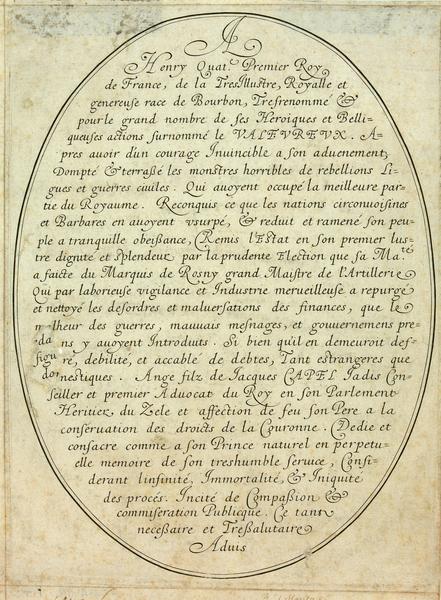 A
Henry Quat.e Premier Roy
de France, de la TresIllustre, Royalle et
genereuse race de Bourbon, Tresrenommé &
pour le grand nombre de ses Heroiques et Belli-
queuses actions surnommé le VALEVREVX. A-
pres auoir d'un courage Inuincible a son aduenement,
Dompté & terrassé les monstres horribles de rebellions Li-
gues et guerres ciuiles. Qui auoyent occupé la meilleure par-
tie du Royaume. Reconquis ce que les nations circonuoisines
et Barbares en auoyent vsurpé, & reduit et ramené son peu-
ple a tranquille obeissance, Remis l'Estat en son premier lus-
tre dignité et splendeur par la prudente Election que sa Ma.te
a faicte du Marquis de Rosny grand Maistre de l'Artillerie
Qui par laborieuse vigilance et Industrie merueilleuse a repurgé
et nettoyé les desordres et maluersations des finances, que le
m lheur des guerres, mauuais mesnages, et gouuernemens pre-
da ns y auoyent Introduits. Si bien qu'il en demeuroit def-
figu ré, debilité, et accablé de debtes, Tant estrangeres que
do nestiques. Ange filz de Jacques CAPEL Jadis Con-
seiller et premier Aduocat du Roy en son Parlement
Heritier du Zele et affection de feu son Pere a la
conseruation des droicts de la Couronne. Dedie et
consacre comme a son Prince naturel en perpetu-
elle memoire de son treshumble seruice, Consi-
derant linfinité, Immortalité, & Iniquité
des procés. Incité de Compassion &
commiseration Publicque. Ce tant
necessaire et Tressalutaire
Aduis